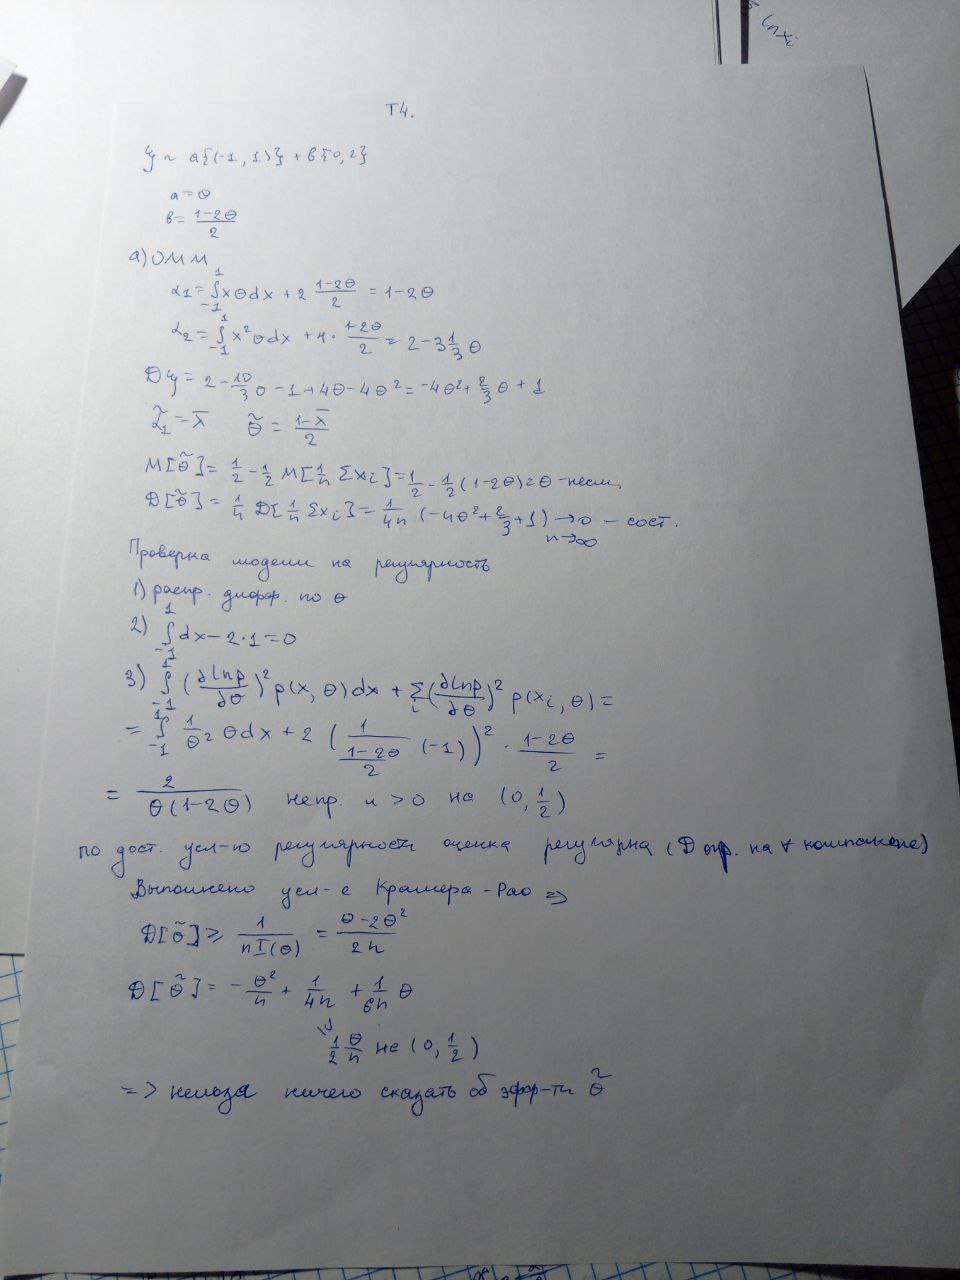 ln xᵢ
T4.
ξ ~ a{(-1, 1)} + b{0, 2}
a = θ
b = (1-2θ)/2
а) ОММ
α₁ = ∫₋₁¹ xθdx + 2 (1-2θ)/2 = 1-2θ
α₂ = ∫₋₁¹ x²θdx + 4·(1-2θ)/2 = 2 - 3 1/3 θ
Dξ = 2 - 10/3 θ - 1 + 4θ - 4θ² = -4θ² + 2/3 θ + 1
α̃₁ = x̄   θ̃ = (1-x̄)/2
M[θ̃] = 1/2 - 1/2 M[1/n Σxᵢ] = 1/2 - 1/2 (1-2θ) = θ - несм.
D[θ̃] = 1/4 D[1/n Σxᵢ] = 1/4n (-4θ² + 2/3 + 1) → 0 - сост.
n→∞
Проверка модели на регулярность
1) распр. дифф. по θ
2) ∫₋₁¹ dx - 2·1 = 0
3) ∫₋₁¹ (∂lnp/∂θ)² p(x, θ)dx + Σᵢ (∂lnp/∂θ)² p(xᵢ, θ) =
= ∫₋₁¹ 1/θ² θdx + 2 (1/((1-2θ)/2) (-1))² · (1-2θ)/2 =
= 2/(θ(1-2θ)) непр. и > 0 на (0, 1/2)
по дост. усл-ю регулярности оценка регулярна (D огр. на ∀ компакте)
Выполнено усл-е Крамера-Рао =>
D[θ̃] ≥ 1/(nI(θ)) = (θ-2θ²)/2n
D[θ̃] = -θ²/n + 1/4n + 1/6n θ
∨
1/2 θ/n на (0, 1/2)
=> нельзя ничего сказать об эфф-ти θ̃